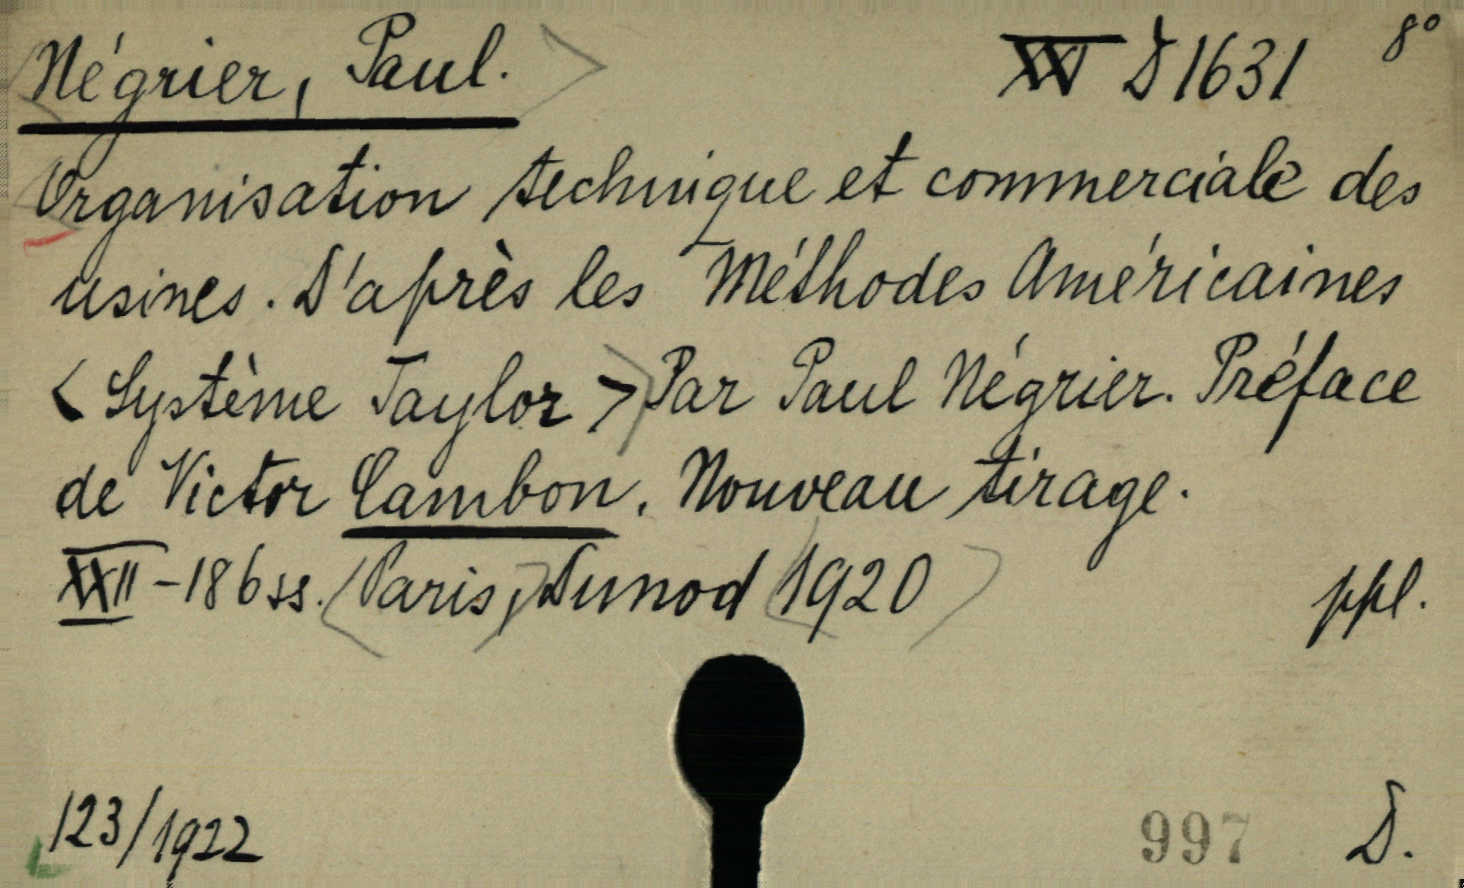 Négrier, Paul. XVI D 1631 8°
Organisation technique et commerciale des
usines. D'après les Méthodes Américaines
<Système Taylor> Par Paul Négrier. Préface
de Victor Cambon. Nouveau tirage.
XXII-186 ss. (Paris, Dunod 1920) ppl.
123/1922 997 D.